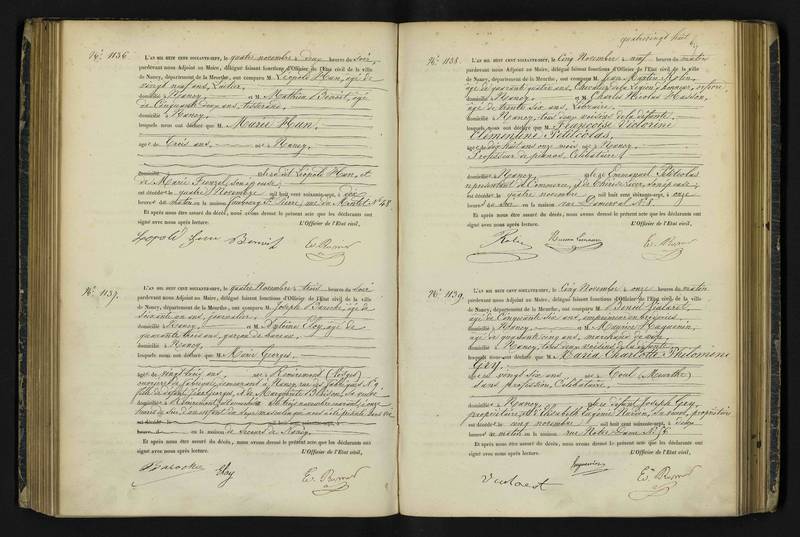 N.º 1136.
L'AN MIL HUIT CENT SOIXANTE-SEPT, le quatre novembre à deux heures du soir,
pardevant nous Adjoint au Maire, délégué faisant fonctions d'Officier de l'État civil de la ville
de Nancy, département de la Meurthe, ont comparu M. Léopold Hun, âgé de
vingt neuf ans, Luthier,
domicilié à Nancy, et M. Mathieu Benoit, âgé
de Cinquante deux ans, tisserand,
domicilié à Nancy,
lesquels nous ont déclaré que M. Marie Hun,
âgée de Trois ans, née à Nancy,
domiciliée fille dudit Léopold Hun, et
de Marie Frenzel son épouse,
est décédée le quatre Novembre mil huit cent soixante-sept, à dix
heures du matin en la maison faubourg St Pierre, rue du Montet N.º 48
Et après nous être assuré du décès, nous avons dressé le présent acte que les déclarants ont
signé avec nous après lecture. L'Officier de l'État civil,
Leopold Hun Benoit
N.º 1137.
L'AN MIL HUIT CENT SOIXANTE-SEPT, le quatre Novembre à trois heures du soir
pardevant nous Adjoint au Maire, délégué faisant fonctions d'Officier de l'État civil de la ville
de Nancy, département de la Meurthe, ont comparu M. Joseph Baroche, âgé de
soixante un ans,
domicilié à Nancy, et M. Cytime Eloy, âgé de
quarante trois ans, garçon de bureau,
domicilié à Nancy,
lesquels nous ont déclaré que M. Marie Georges,
âgée de vingt trois ans, née à Remiremont (Vosges)
ouvrière de fabrique, demeurant à Nancy, rue des fabriques N.º 9
fille de défunt Georges, et de Marguerite Blaison, sa veuve
domiciliée à Remiremont,
heures du soir d'un enfant du sexe masculin qui nous a été présenté sans vie
heures en la maison de secours de Nancy.
Et après nous être assuré du décès, nous avons dressé le présent acte que les déclarants ont
signé avec nous après lecture. L'Officier de l'État civil,
Baroche Eloy
quatrevingt huit
N.º 1138.
L'AN MIL HUIT CENT SOIXANTE-SEPT, le Cinq Novembre à neuf heures du matin
pardevant nous Adjoint au Maire, délégué faisant fonctions d'Officier de l'État civil de la ville
de Nancy, département de la Meurthe, ont comparu M. Jean Martin Rolin,
âgé de quatre ans, Chevalier de la Légion d'honneur,
domicilié à Nancy, et M. Charles Nicolas Husson,
âgé de trente six ans, Libraire,
domicilié à Nancy, tous deux voisins de la défunte,
lesquels nous ont déclaré que M. Françoise Victorine
Clémentine Petitcolas,
âgée de dix huit ans onze mois, née à Nancy,
Professeur de pianos, Célibataire,
domiciliée à Nancy, fille de Emmanuel Petitcolas
représentant de Commerce, & de Thérèse son épouse,
est décédée le quatre novembre mil huit cent soixante-sept, à onze
heures du soir en la maison rue Damerval N.º 8.
Et après nous être assuré du décès, nous avons dressé le présent acte que les déclarants ont
signé avec nous après lecture. L'Officier de l'État civil,
Rolin
N.º 1139.
L'AN MIL HUIT CENT SOIXANTE-SEPT, le Cinq Novembre à onze heures du matin
pardevant nous Adjoint au Maire, délégué faisant fonctions d'Officier de l'État civil de la ville
de Nancy, département de la Meurthe, ont comparu M.
âgé de Cinquante six ans, employé
domicilié à Nancy, et M. Maurice Haguenin,
âgé de quarante cinq ans, marchand de
domicilié à Nancy, tous deux voisins de la défunte,
lesquels nous ont déclaré que M. Maria Charlotte Philomène
Gry,
âgée de vingt six ans, née à Toul (Meurthe)
sans profession, Célibataire,
domiciliée à Nancy, fille de défunt Joseph Gry,
propriétaire, et de Elisabeth Eugénie sa veuve, propriétaire
est décédée le cinq novembre mil huit cent soixante-sept, à deux
heures du matin en la maison rue Notre Dame N.º
Et après nous être assuré du décès, nous avons dressé le présent acte que les déclarants ont
signé avec nous après lecture. L'Officier de l'État civil,